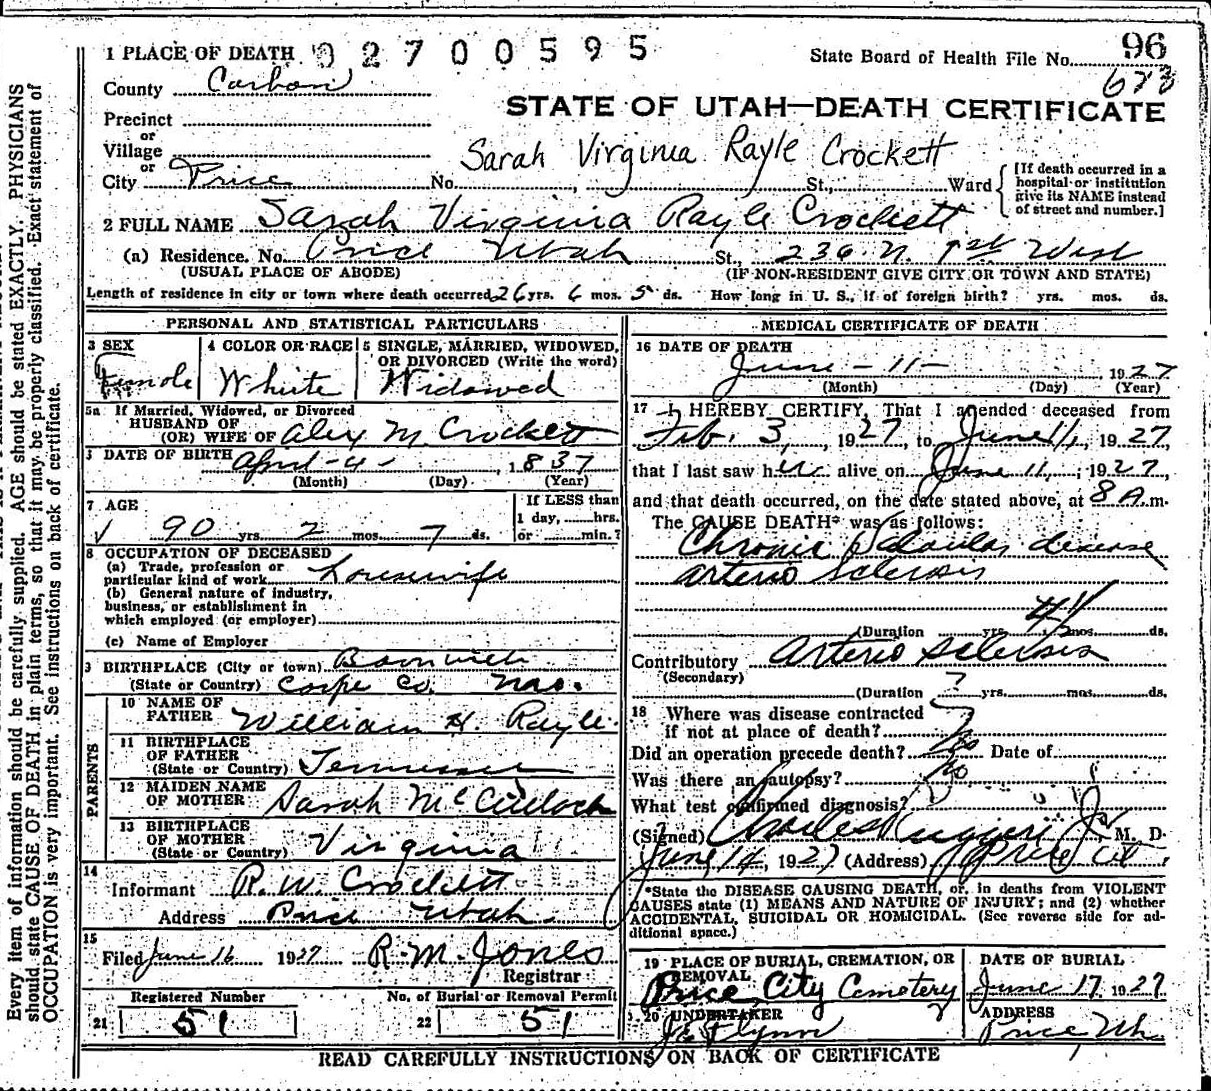 1 PLACE OF DEATH 02700595
State Board of Health File No. 96
County Carbon
673
STATE OF UTAH—DEATH CERTIFICATE
Precinct
or
Village
Sarah Virginia Rayle Crockett
or
City Price No. , St., Ward
[If death occurred in a hospital or institution give its NAME instead of street and number.]
2 FULL NAME Sarah Virginia Rayle Crockett
(a) Residence. No. Price Utah St., 236 N. 1st West
(USUAL PLACE OF ABODE) (IF NON-RESIDENT GIVE CITY OR TOWN AND STATE)
Length of residence in city or town where death occurred 26 yrs. 6 mos. 5 ds. How long in U. S., if of foreign birth? yrs. mos. ds.
PERSONAL AND STATISTICAL PARTICULARS
3 SEX Female
4 COLOR OR RACE White
5 SINGLE, MARRIED, WIDOWED, OR DIVORCED (Write the word) Widowed
5a If Married, Widowed, or Divorced
HUSBAND OF
(OR) WIFE OF Alex M. Crockett
DATE OF BIRTH April - 4 - , 1837
(Month) (Day) (Year)
7 AGE
If LESS than
1 day, hrs.
90 yrs. 2 mos. 7 ds. or min.?
8 OCCUPATION OF DECEASED
(a) Trade, profession or
particular kind of work housewife
(b) General nature of industry,
business, or establishment in
which employed (or employer)
(c) Name of Employer
BIRTHPLACE (City or town)
(State or Country) Co.
PARENTS
10 NAME OF
FATHER William H. Rayle
11 BIRTHPLACE
OF FATHER
(State or Country) Tennessee
12 MAIDEN NAME
OF MOTHER Sarah McCulloch
13 BIRTHPLACE
OF MOTHER
(State or Country) Virginia
14
Informant R. W. Crockett
Address Price Utah.
15
Filed June 16 1927 R. M. Jones
Registrar
Registered Number No. of Burial or Removal Permit
21 51 22 51
MEDICAL CERTIFICATE OF DEATH
16 DATE OF DEATH
June - 11 - 1927
(Month) (Day) (Year)
17 I HEREBY CERTIFY, That I attended deceased from
Feb. 3, 1927, to June 11, 1927
that I last saw her alive on June 11, 1927,
and that death occurred, on the date stated above, at 8 A.m.
The CAUSE DEATH* was as follows:
Chronic disease
Arterio Sclerosis
(Duration yrs. mos. ds.
Contributory Arterio Sclerosis
(Secondary)
(Duration ? yrs. mos. ds.
18 Where was disease contracted
if not at place of death? ?
Did an operation precede death? No Date of
Was there an autopsy? No
What test confirmed diagnosis?
(Signed) Charles Ruggeri Jr. M. D.
June 14, 1927 (Address) Price Ut.
*State the DISEASE CAUSING DEATH, or, in deaths from VIOLENT
CAUSES state (1) MEANS AND NATURE OF INJURY; and (2) whether
ACCIDENTAL, SUICIDAL OR HOMICIDAL. (See reverse side for additional space.)
19 PLACE OF BURIAL, CREMATION, OR
REMOVAL
Price City Cemetery
DATE OF BURIAL
June 17 1927
20 UNDERTAKER
Flynn
ADDRESS
Price Uh.
READ CAREFULLY INSTRUCTIONS ON BACK OF CERTIFICATE
Every item of information should be carefully supplied. AGE should be stated EXACTLY. PHYSICIANS
should state CAUSE OF DEATH in plain terms, so that it may be properly classified. Exact statement of
OCCUPATION is very important. See instructions on back of certificate.